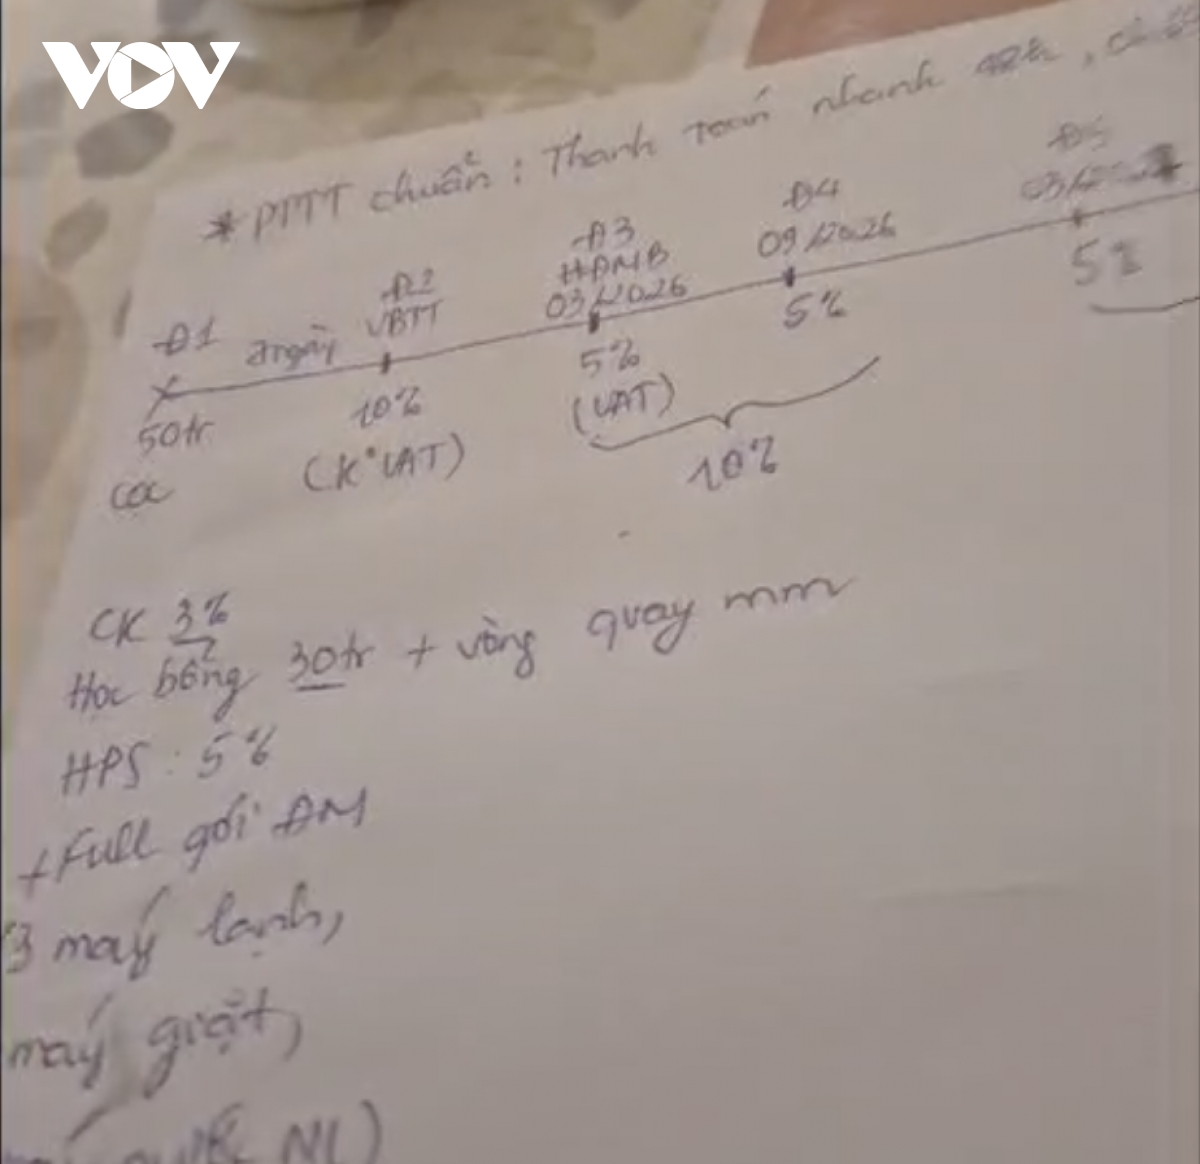 VOV
* PTTT chuẩn : Thanh toán nhanh
Đ1
7 ngày
Đ2
VBTT
Đ3
HĐMB
03/2026
Đ4
09/2026
Đ5
50tr
cọc
10%
(K° VAT)
5%
(VAT)
5%
5%
10%
CK 3%
Học bổng 30tr + vòng quay mm
HPS : 5%
+ Full gói ĐM
(3 máy lạnh,
máy giặt,
NL)